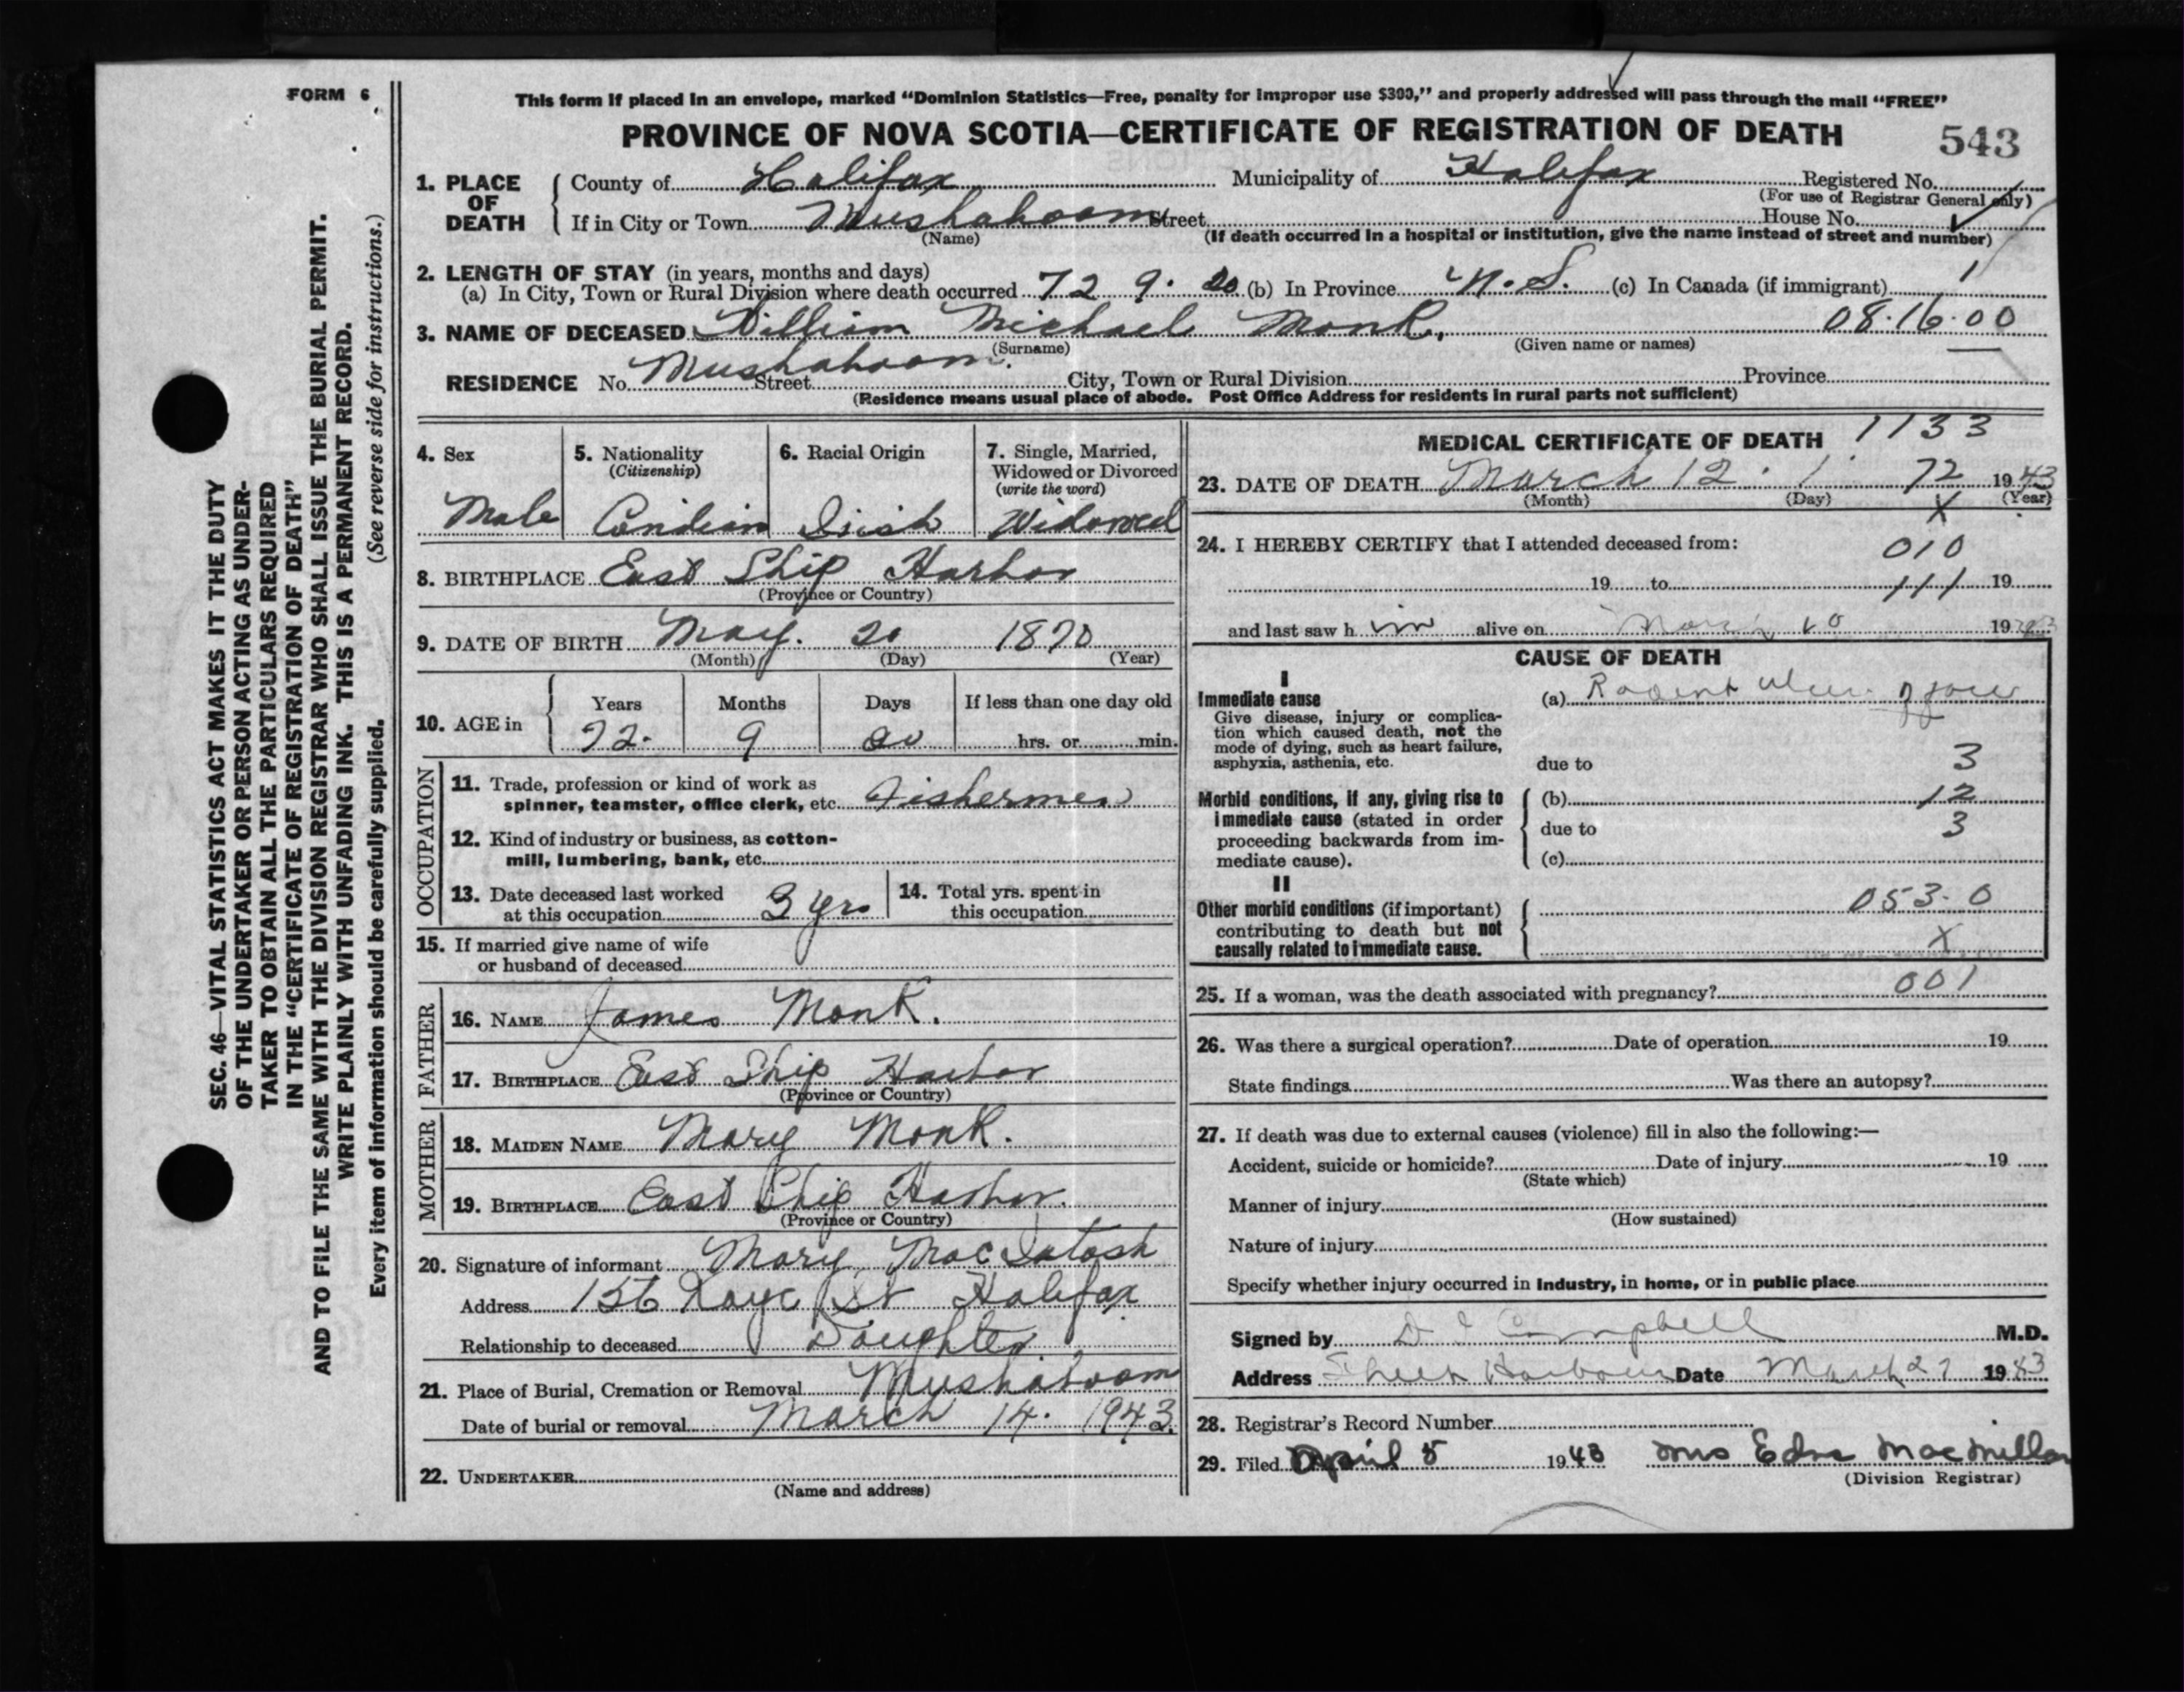 FORM 6
This form if placed in an envelope, marked "Dominion Statistics—Free, penalty for improper use $300," and properly addressed will pass through the mail "FREE"
PROVINCE OF NOVA SCOTIA—CERTIFICATE OF REGISTRATION OF DEATH
543
1. PLACE OF DEATH
County of Halifax Municipality of Halifax Registered No.
(For use of Registrar General only)
If in City or Town Mushaboom Street House No.
(Name) (If death occurred in a hospital or institution, give the name instead of street and number)
2. LENGTH OF STAY (in years, months and days)
(a) In City, Town or Rural Division where death occurred 72 9. 20 (b) In Province N.S. (c) In Canada (if immigrant) 1
3. NAME OF DECEASED William Michael Monk. 08.16.00
(Surname) (Given name or names)
RESIDENCE No. Mushaboom. Street City, Town or Rural Division Province
(Residence means usual place of abode. Post Office Address for residents in rural parts not sufficient)
4. Sex
Male
5. Nationality
(Citizenship)
Candian
6. Racial Origin
Irish
7. Single, Married, Widowed or Divorced
(write the word)
Widowed
8. BIRTHPLACE East Ship Harbor
(Province or Country)
9. DATE OF BIRTH May. 20 1870
(Month) (Day) (Year)
10. AGE in
Years Months Days If less than one day old
72. 9 20 hrs. or min.
OCCUPATION
11. Trade, profession or kind of work as
spinner, teamster, office clerk, etc. Fishermen
12. Kind of industry or business, as cotton-
mill, lumbering, bank, etc.
13. Date deceased last worked
at this occupation 3 yrs
14. Total yrs. spent in
this occupation
15. If married give name of wife
or husband of deceased
FATHER
16. NAME James Monk.
17. BIRTHPLACE East Ship Harbor
(Province or Country)
MOTHER
18. MAIDEN NAME Mary Monk.
19. BIRTHPLACE East Ship Harbor.
(Province or Country)
20. Signature of informant Mary MacIntosh
Address 156 St Halifax
Relationship to deceased Daughter
21. Place of Burial, Cremation or Removal Mushaboom
Date of burial or removal March 14. 1943.
22. UNDERTAKER
(Name and address)
MEDICAL CERTIFICATE OF DEATH 1133
23. DATE OF DEATH March 12. 1. 72 1943
(Month) (Day) X (Year)
24. I HEREBY CERTIFY that I attended deceased from: 010
19 to 111 19
and last saw h im alive on March 10 1943
CAUSE OF DEATH
I
Immediate cause
Give disease, injury or complica-
tion which caused death, not the
mode of dying, such as heart failure,
asphyxia, asthenia, etc.
(a) Rodent ulcer of face
due to 3
Morbid conditions, if any, giving rise to
immediate cause (stated in order
proceeding backwards from im-
mediate cause).
(b) 12
due to 3
(c)
II
Other morbid conditions (if important)
contributing to death but not
causally related to immediate cause.
053.0
X
25. If a woman, was the death associated with pregnancy? 001
26. Was there a surgical operation? Date of operation 19
State findings Was there an autopsy?
27. If death was due to external causes (violence) fill in also the following:—
Accident, suicide or homicide? Date of injury 19
(State which)
Manner of injury
(How sustained)
Nature of injury
Specify whether injury occurred in Industry, in home, or in public place
Signed by D I Campbell M.D.
Address Sheet Harbour Date March 27 1943
28. Registrar's Record Number
29. Filed April 5 1943 Mrs Edna MacMillan
(Division Registrar)
SEC. 46—VITAL STATISTICS ACT MAKES IT THE DUTY
OF THE UNDERTAKER OR PERSON ACTING AS UNDER-
TAKER TO OBTAIN ALL THE PARTICULARS REQUIRED
IN THE "CERTIFICATE OF REGISTRATION OF DEATH"
AND TO FILE THE SAME WITH THE DIVISION REGISTRAR WHO SHALL ISSUE THE BURIAL PERMIT.
WRITE PLAINLY WITH UNFADING INK. THIS IS A PERMANENT RECORD.
Every item of information should be carefully supplied. (See reverse side for instructions.)